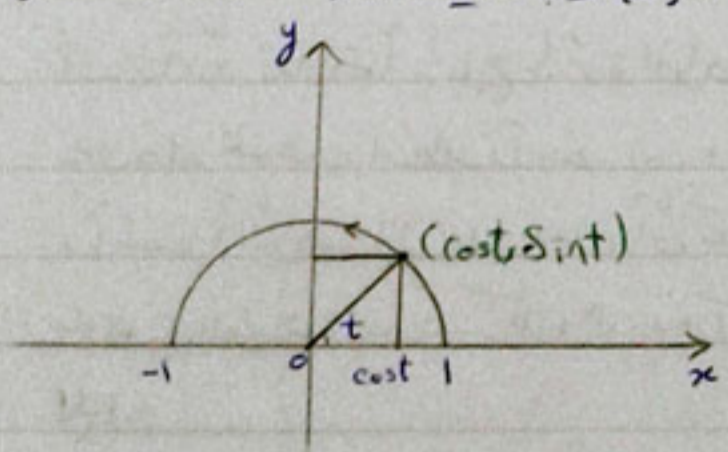 y
(cost, Sint)
t
-1 0 cost 1 x